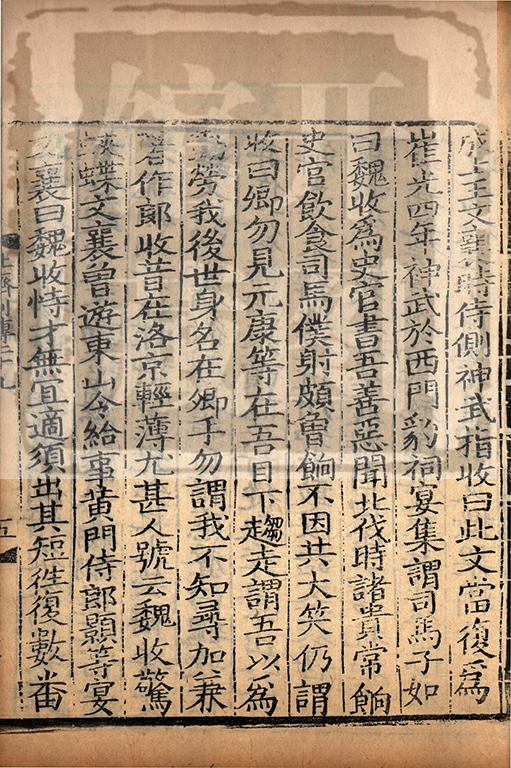 成上王文襄時侍側神武指收曰此文當復為
崔光四年神武於西門豹祠宴集謂司馬子如
曰魏收為史官書吾善惡聞北伐時諸貴常餉
史官飲食司馬僕射頗魯餉不因共大笑仍謂
收曰卿勿見元康等在吾目下趨走謂吾以為
勤勞我後世身名在卿手勿謂我不知尋加兼
著作郎收昔在洛京輕薄尤甚人號云魏收驚
蛺蝶文襄曾遊東山令給事黃門侍郎顥等宴
文襄曰魏收恃才無宜適須出其短徃復數番
傳二十九
五